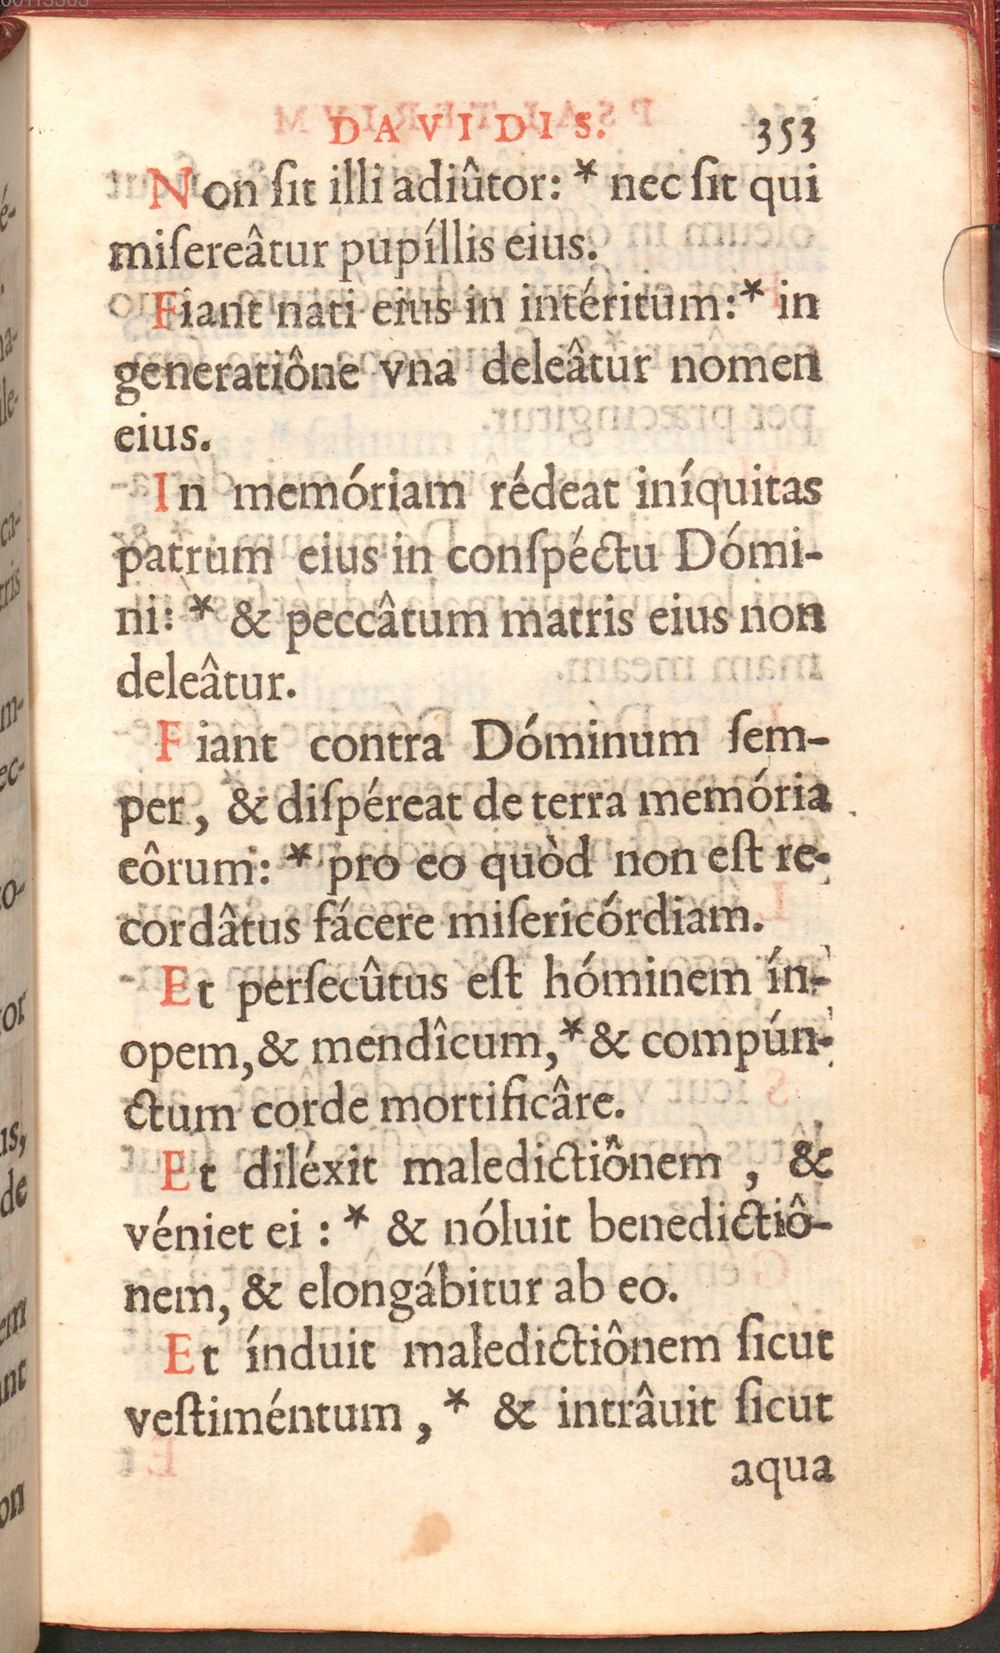 DAVIDIS. 353
Non ſit illi adiûtor: * nec ſit qui
miſereâtur pupíllis eius.
Fiant nati eius in intéritum: * in
generatiône vna deleâtur nomen
eius.
In memóriam rédeat iníquitas
patrum eius in conſpéctu Dómi-
ni: * & peccâtum matris eius non
deleâtur.
Fiant contra Dóminum ſem-
per, & diſpéreat de terra memória
eôrum: * pro eo quòd non eſt re-
cordâtus fácere miſericórdiam.
Et perſecûtus eſt hóminem ín-
opem, & mendîcum, * & compún-
ctum corde mortificâre.
Et diléxit maledictiônem, &
véniet ei: * & nóluit benedictiô-
nem, & elongábitur ab eo.
Et índuit maledictiônem ſicut
veſtiméntum, * & intrâuit ſicut
aqua